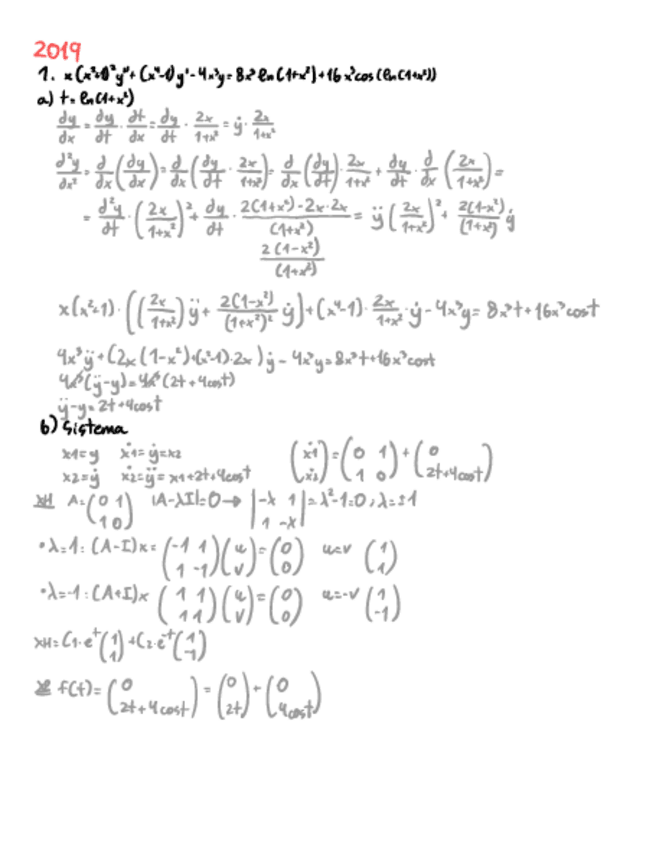 2019
1. x(x²+1)²y'' + (x⁴-1)y' - 4x³y = 8x³ ln(1+x²) + 16x³cos(ln(1+x²))
a) t = ln(1+x²)
dy/dx = dy/dt · dt/dx = dy/dt · 2x/1+x² = ẏ · 2x/1+x²
d²y/dx² = d/dx (dy/dx) = d/dx (dy/dt · 2x/1+x²) = d/dx (dy/dt) · 2x/1+x² + dy/dt · d/dx (2x/1+x²) =
= d²y/dt · (2x/1+x²)² + dy/dt · 2(1+x²)-2x·2x/(1+x²) = ÿ (2x/1+x²)² + 2(1-x²)/(1+x²) ẏ
2(1-x²)/(1+x²)
x(x²+1) · ((2x/1+x²) ÿ + 2(1-x²)/(1+x²)² ẏ) + (x⁴-1) · 2x/1+x² · ẏ - 4x³y = 8x³t + 16x³cost
4x³ÿ + (2x(1-x²) + (x²-1)·2x) ẏ - 4x³y = 8x³t + 16x³cost
4x³(ÿ-y) = 4x³(2t+4cost)
ÿ-y = 2t+4cost
b) Sistema
x1=y ẋ1=ẏ=x2 (ẋ1 ẋ2) = (0 1 1 0) + (0 2t+4cost)
x2=ẏ ẋ2=ÿ=x1+2t+4cost
xH A=(0 1 1 0) |A-λI|=0 → |-λ 1 1 -λ| = λ²-1=0, λ=±1
• λ=1: (A-I)x = (-1 1 1 -1)(u v) = (0 0) u=v (1 1)
• λ=-1: (A+I)x (1 1 1 1)(u v) = (0 0) u=-v (1 -1)
xH = C1·eᵗ(1 1) + C2·e⁻ᵗ(1 -1)
f(t) = (0 2t+4cost) = (0 2t) + (0 4cost)